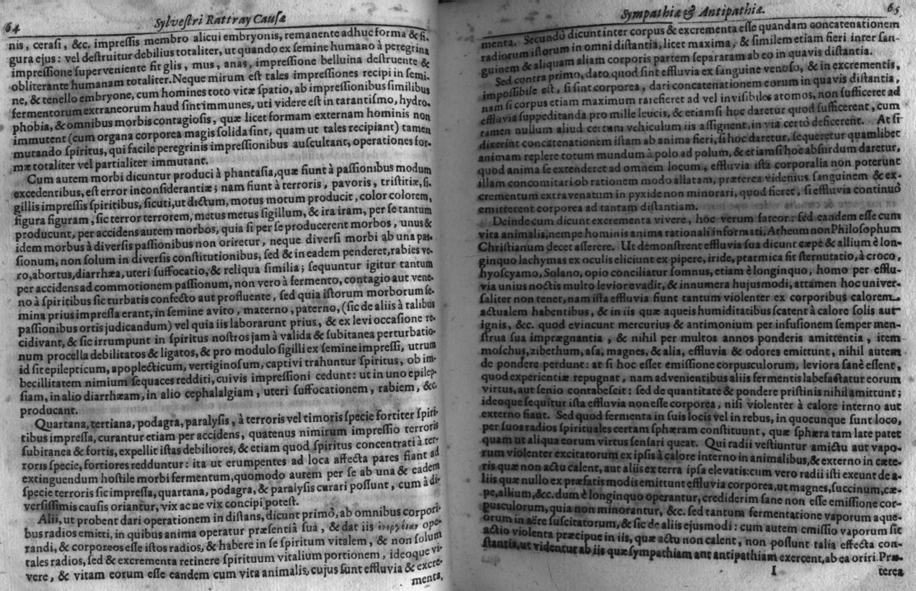 64
Sylvestri Rattray Causæ
nis, cerasi, &c. impressis membro alicui embryonis, remanente adhuc forma & fi-
gura ejus: vel destruitur debilius totaliter, ut quando ex semine humano à peregrina
impressione superveniente fit glis, mus, anas, impressione belluina destruente &
obliterante humanam totaliter. Neque mirum est tales impressiones recipi in semi-
ne, & tenello embryone, cum homines toto vitæ spatio, ab impressionibus similibus
fermentorum extraneorum haud sint immunes, uti videre est in tarantismo, hydro-
phobia, & omnibus morbis contagiosis, quæ licet formam externam hominis non
immutent (cum organa corporea magis solida sint, quam ut tales recipiant) tamen
mutando spiritus, qui facile peregrinis impressionibus auscultant, operationes for-
mæ totaliter vel partialiter immutant.
Cum autem morbi dicuntur produci à phantasia, quæ fiunt à passionibus modum
excedentibus, est error inconsiderantiæ; nam fiunt à terroris, pavoris, tristitiæ, si-
gillis impressis spiritibus, sicuti, ut dictum, motus motum producit, color colorem,
figura figuram, sic terror terrorem, metus metus sigillum, & ira iram, per se tantum
producunt, per accidens autem morbos, quia si per se producerent morbos, unus &
idem morbus à diversis passionibus non oriretur, neque diversi morbi ab una pas-
sionum, non solum in diversis constitutionibus, sed & in eadem penderet, rabies ve-
ro, abortus, diarrhæa, uteri suffocatio, & reliqua similia; sequuntur igitur tantum
per accidens ad commotionem passionum, non vero à fermento, contagio aut vene-
no à spiritibus sic turbatis confecto aut profluente, sed quia istorum morborum se-
mina prius impressa erant, in semine avito, materno, paterno, (sic de aliis à talibus
passionibus ortis judicandum) vel quia iis laborarunt prius, & ex levi occasione re-
cidivant, & sic irrumpunt in spiritus nostros jam à valida & subitanea perturbatio-
num procella debilitatos & ligatos, & pro modulo sigilli ex semine impressi, utrum
id sit epilepticum, apoplecticum, vertiginosum, captivi trahuntur spiritus, ob im-
becillitatem nimium sequaces redditi, cuivis impressioni cedunt: ut in uno epilep-
siam, in alio diarrhæam, in alio cephalalgiam, uteri suffocationem, rabiem, &c.
producant.
Quartana, tertiana, podagra, paralysis, à terroris vel timoris specie fortiter spiri-
tibus impressa, curantur etiam per accidens, quatenus nimirum impressio terroris
subitanea & fortis, expellit istas debiliores, & etiam quod spiritus concentrati à ter-
roris specie, fortiores redduntur: ita ut erumpentes ad loca affecta pares fiant ad
extinguendum hostile morbi fermentum, quomodo autem per se ab una & eadem
specie terroris sic impressa, quartana, podagra, & paralysis curari possunt, cum à di-
versissimis causis oriantur, vix ac ne vix concipi potest.
Alii, ut probent dari operationem in distans, dicunt primò, ab omnibus corpori-
bus radios emitti, in quibus anima operatur præsentiâ suâ, & dat iis ope-
randi, & corporeos esse istos radios, & habere in se spiritum vitalem, & non solum
tales radios, sed & excrementa retinere spirituum vitalium portionem, ideoque vi-
vere, & vitam eorum esse eandem cum vita animalis, cujus sunt effluvia & excre-
menta,
Sympathiæ & Antipathiæ.
65
menta. Secundò dicunt inter corpus & excrementa esse quandam concatenationem
radiorum istorum in omni distantia, licet maxima, & similem etiam fieri inter san-
guinem & aliquam aliam corporis partem separatam ab eo in quavis distantia.
Sed contra primo, dato, quod sint effluvia ex sanguine venoso, & in excrementis,
impossibile est, si sint corporea, dari concatenationem eorum in quavis distantia,
nam si corpus etiam maximum rarefieret ad vel invisibiles atomos, non sufficeret ad
effluvia suppeditanda pro mille leucis, & etiamsi hoc daretur quod sufficerent, cum
tamen nullum aliud certum vehiculum iis assignent, in via certò deficerent. At si
dixerint concatenationem istam ab anima fieri, si hoc daretur, sequeretur quamlibet
animam replere totum mundum à polo ad polum, & etiamsi hoc absurdum daretur,
quod anima se extenderet ad omnem locum, effluvia ista corporalia non poterunt
illam concomitari ob rationem modo allatam, præterea videmus sanguinem & ex-
crementum extravenatum in pyxide non minorari, quod fieret, si effluvia continuò
emitterent corporea ad tantam distantiam.
Deinde cum dicunt excrementa vivere, hoc verum fateor: sed eandem esse cum
vita animalis, nempe hominis anima rationali informati, Atheum non Philosophum
Christianum decet asserere. Ut demonstrent effluvia sua dicunt cæpe & allium è lon-
ginquo lachymas ex oculis eliciunt ex pipere, iride, ptarmica fit sternutatio, à croco,
hyoscyamo, Solano, opio conciliatur somnus, etiam è longinquo, homo per efflu-
via unius noctis multo levior evadit, & innumera hujusmodi, attamen hoc univer-
saliter non tenet, nam ista effluvia fiunt tantum violenter ex corporibus calorem
actualem habentibus, & in iis quæ aqueis humiditatibus scatent à calore solis aut
ignis, &c. quod evincunt mercurius & antimonium per infusionem semper men-
strua sua imprægnantia, & nihil per multos annos ponderis amittentia, item
moschus, zibethum, asa, magnes, & alia, effluvia & odores emittunt, nihil autem
de pondere perdunt: at si hoc esset emissione corpusculorum, leviora sanè essent,
quod experientiæ repugnat, nam advenientibus aliis fermentis labefastatur eorum
virtus, aut senio contabescit: sed de quantitate & pondere pristinis nihil amittunt;
ideoque sequitur ista effluvia non esse corporea, nisi violenter à calore interno aut
externo fiant. Sed quod fermenta in suis locis vel in rebus, in quocunque sunt loco,
per suos radios spirituales certam sphæram constituunt, quæ sphæra tam late patet
quam ut aliqua eorum virtus sensari queat. Qui radii vestiuntur amictu aut vapo-
rum violenter excitatorum ex ipsis à calore interno in animalibus, & externo in cæte-
ris quæ non actu calent, aut aliis ex terra ipsa elevatis: cum vero radii isti exeunt de a-
liis quæ nullo ex præfatis modis emittunt effluvia corporea, ut magnes, succinum, cæ-
pe, allium, &c. dum è longinquo operantur, crediderim sane non esse emissione cor-
pusculorum, quia non minorantur, &c. sed tantum fermentatione vaporum aque-
orum in aëre suscitatorum, & sic de aliis ejusmodi: cum autem emissio vaporum sit
actio violenta præcipue in iis, quæ actu non calent, non possunt talia effecta con-
stantia, ut videntur ab iis quæ sympathiam aut antipathiam exercent, ab ea oriri. Præ-
I
terea